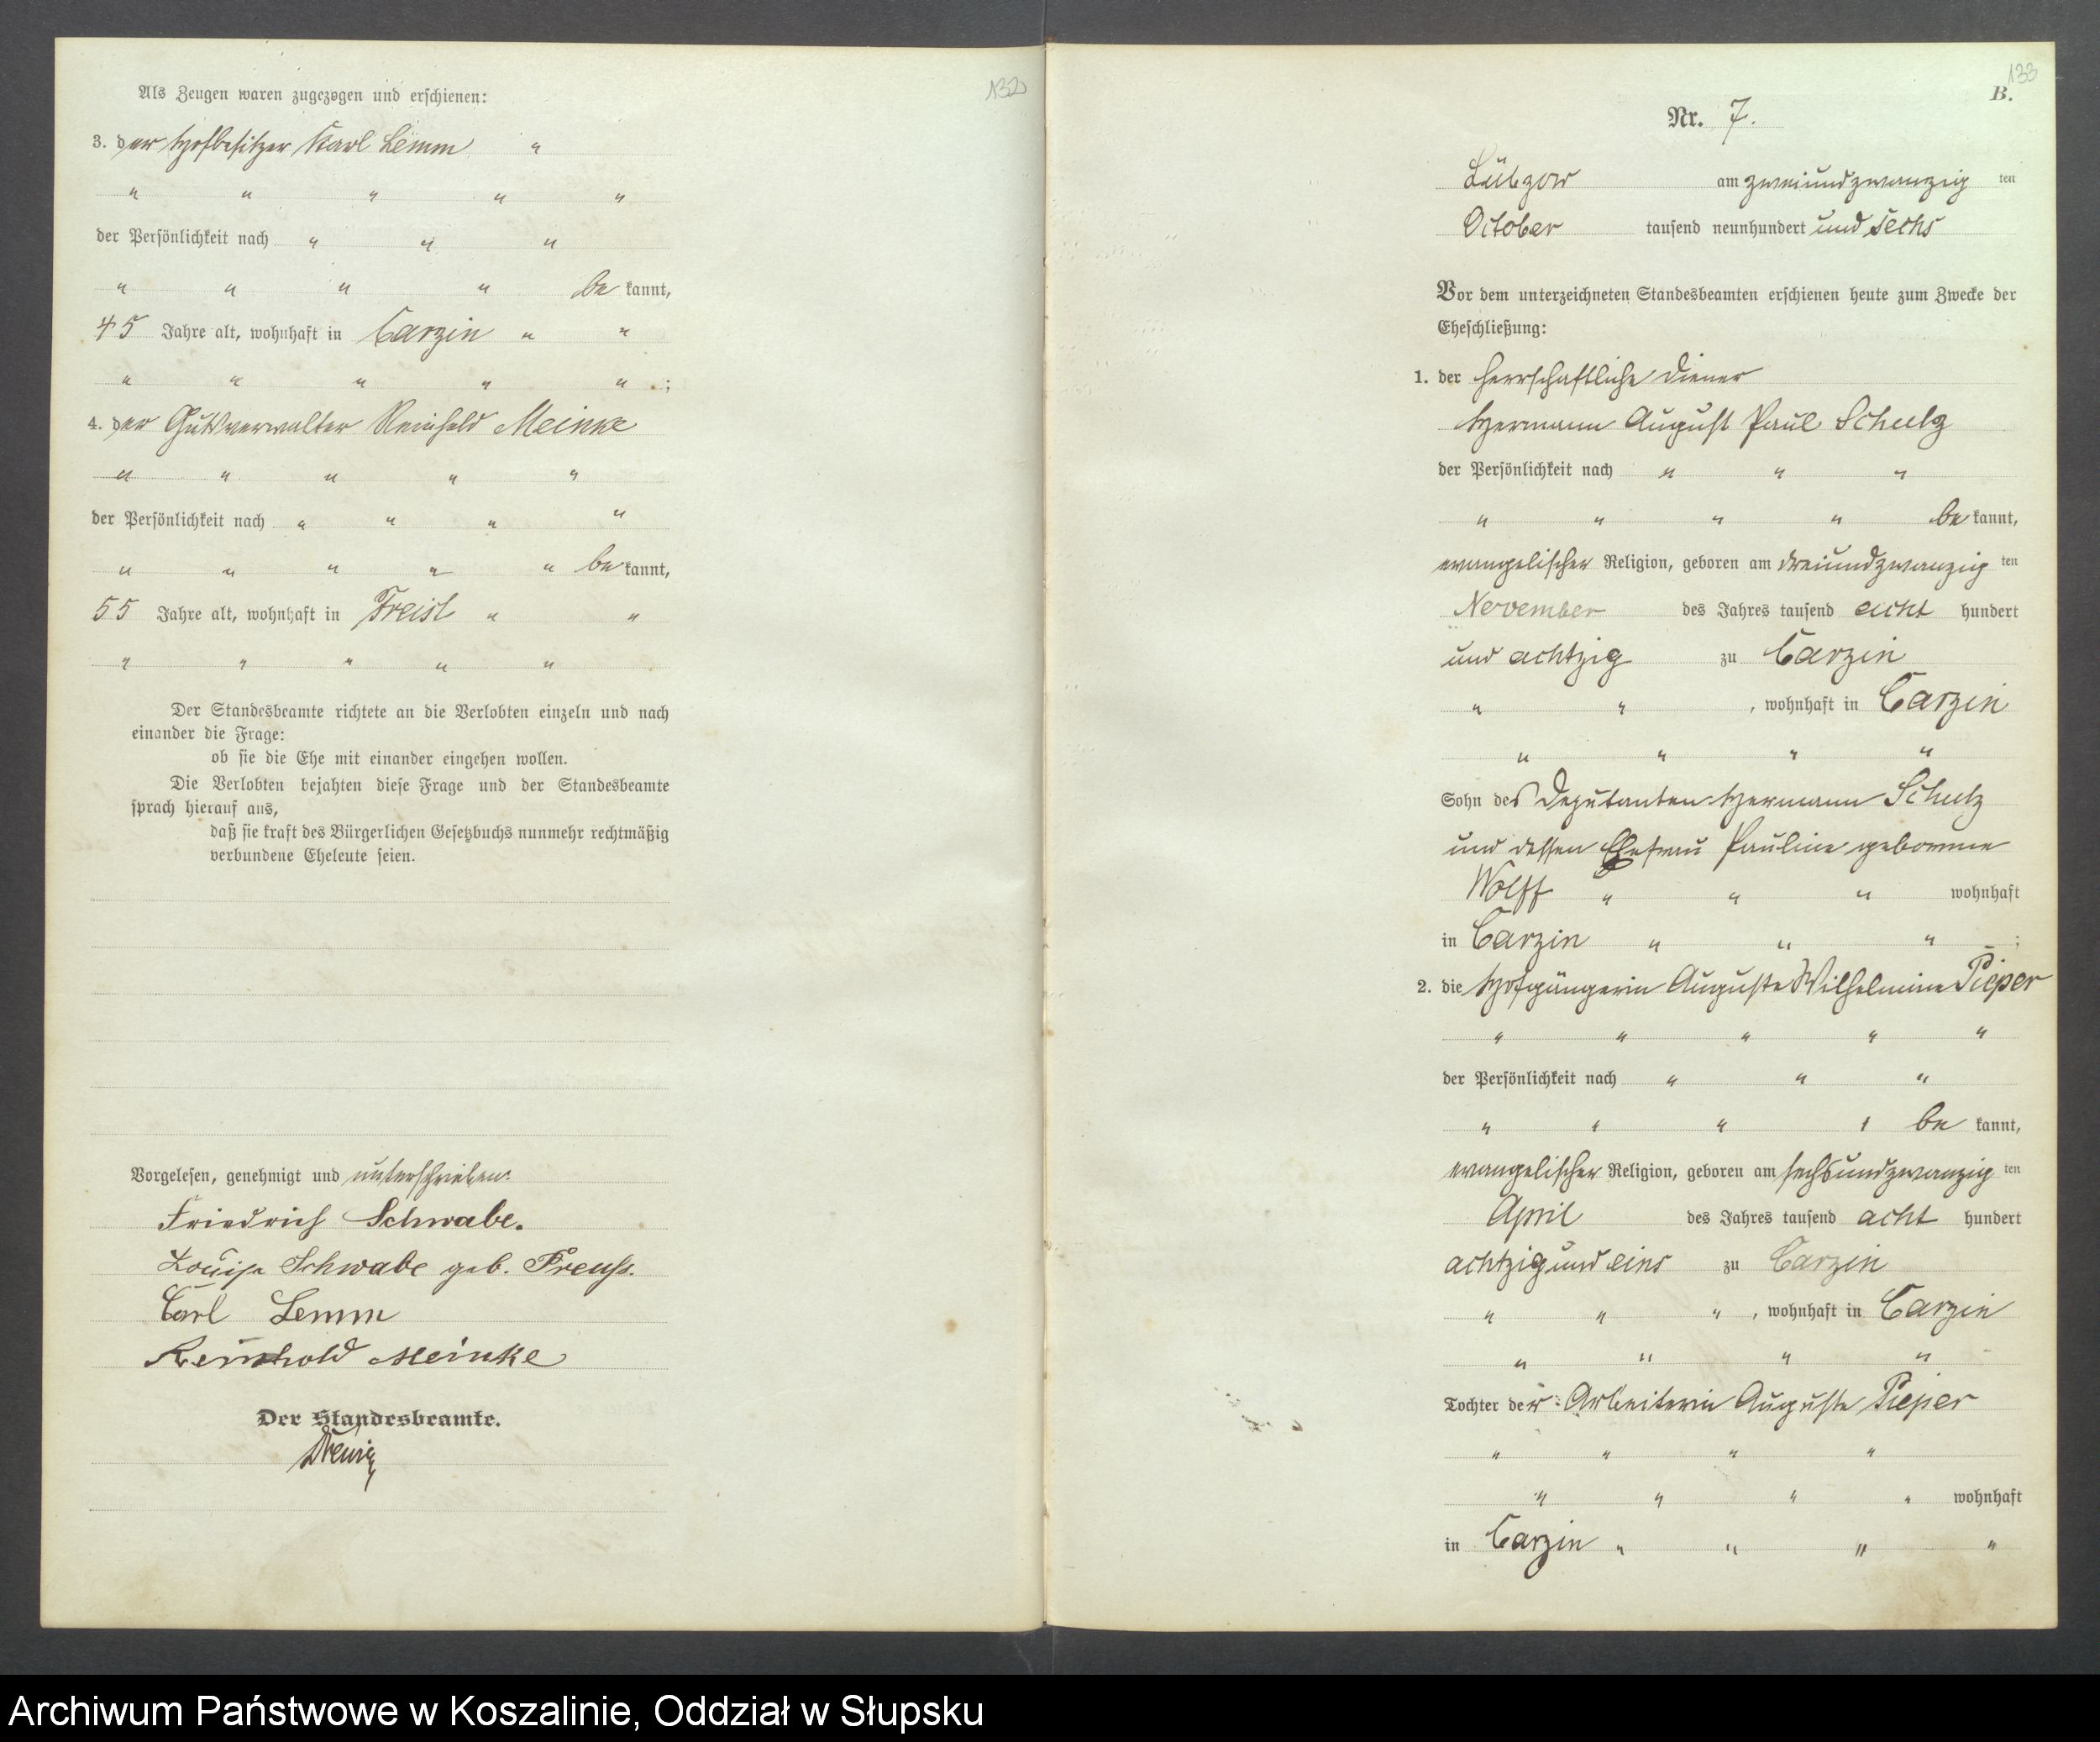 132
Als Zeugen waren zugezogen und erschienen:
3. der Hofbesitzer Karl Lemm "
" " " " "
der Persönlichkeit nach " " "
" " " " be kannt,
45 Jahre alt, wohnhaft in Carzin " "
" " " " " ;
4. der Gutsverwalter Reinhold Meinke
" " " " "
der Persönlichkeit nach " " " "
" " " " " be kannt,
55 Jahre alt, wohnhaft in Freist " "
" " " " "
Der Standesbeamte richtete an die Verlobten einzeln und nach
einander die Frage:
ob sie die Ehe mit einander eingehen wollen.
Die Verlobten bejahten diese Frage und der Standesbeamte
sprach hierauf aus,
daß sie kraft des Bürgerlichen Gesetzbuchs nunmehr rechtmäßig
verbundene Eheleute seien.
Vorgelesen, genehmigt und unterschrieben:
Friedrich Schwabe.
Louise Schwabe geb. Preuss.
Carl Lemm
Reinhold Meinke
Der Standesbeamte.
133
B.
Nr. 7.
Lübzow am zweiundzwanzig ten
October tausend neunhundert und sechs
Vor dem unterzeichneten Standesbeamten erschienen heute zum Zwecke der
Eheschließung:
1. der herrschaftliche Diener
Hermann August Paul Schulz
der Persönlichkeit nach " " "
" " " " be kannt,
evangelischer Religion, geboren am dreiundzwanzig ten
November des Jahres tausend acht hundert
und achtzig zu Carzin
" " , wohnhaft in Carzin
" " " "
Sohn des Deputanten Hermann Schulz
und dessen Ehefrau Pauline geborene
Wolff " " " wohnhaft
in Carzin " " " ;
2. die Hofgängerin Auguste Wilhelmine Pieper
" " " " "
der Persönlichkeit nach " " "
" " " " be kannt,
evangelischer Religion, geboren am sechsundzwanzig ten
April des Jahres tausend acht hundert
achtzig und eins zu Carzin
" " " , wohnhaft in Carzin
" " " "
Tochter der Arbeiterin Auguste Pieper
" " " "
" " " " wohnhaft
in Carzin " " " "
Archiwum Państwowe w Koszalinie, Oddział w Słupsku